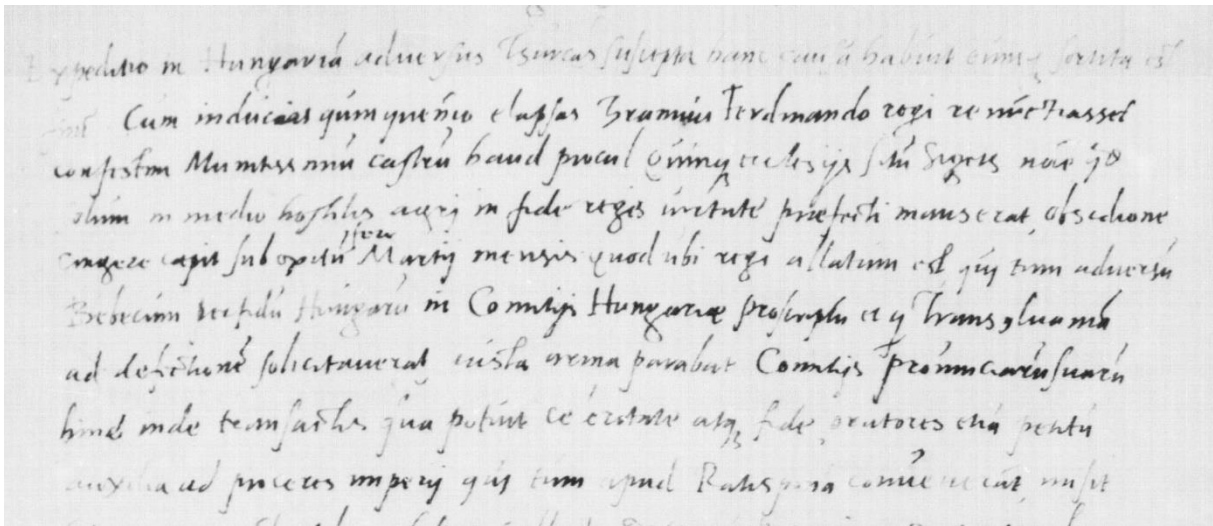 Expeditio in Hungariā adversus Thurcas suscepta hanc causā habuit eumq sortita est
Cum inducias quinquenio elapsas Thurcus Ferdinando regi renūctiasset
confestim Munitissimū castrū haud procul Quinq ecclesijs sitū Sigetis noīe qđ
olim in medio hostilis agri in fide regis virtute praefecti manserat, obsidione
cingere cepit sub exitū fere Martij mensis quod ubi regi allatum est qui tum adversū
Bebecum perfidū Hungarū in Comitijs Hungariæ proscriptū et q Transylvaniā
ad defectionē solicitaverat iusta arma parabat Comitijs provinciarū suarū
hinc inde transactis qua potuit celeritate atq fide oratores etiā petitū
auxilia ad proceres imperij qui tum apud Ratisponā convenerāt misit